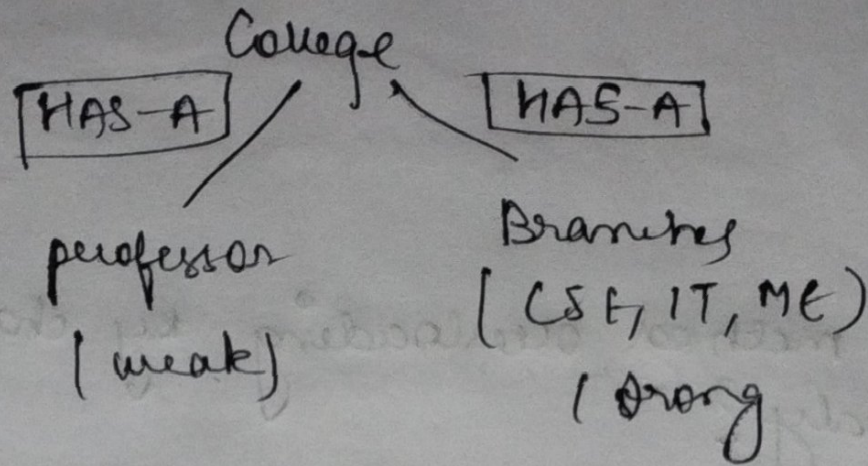 College
HAS-A
HAS-A
professor
Branches
(CSE, IT, ME)
(weak)
(strong